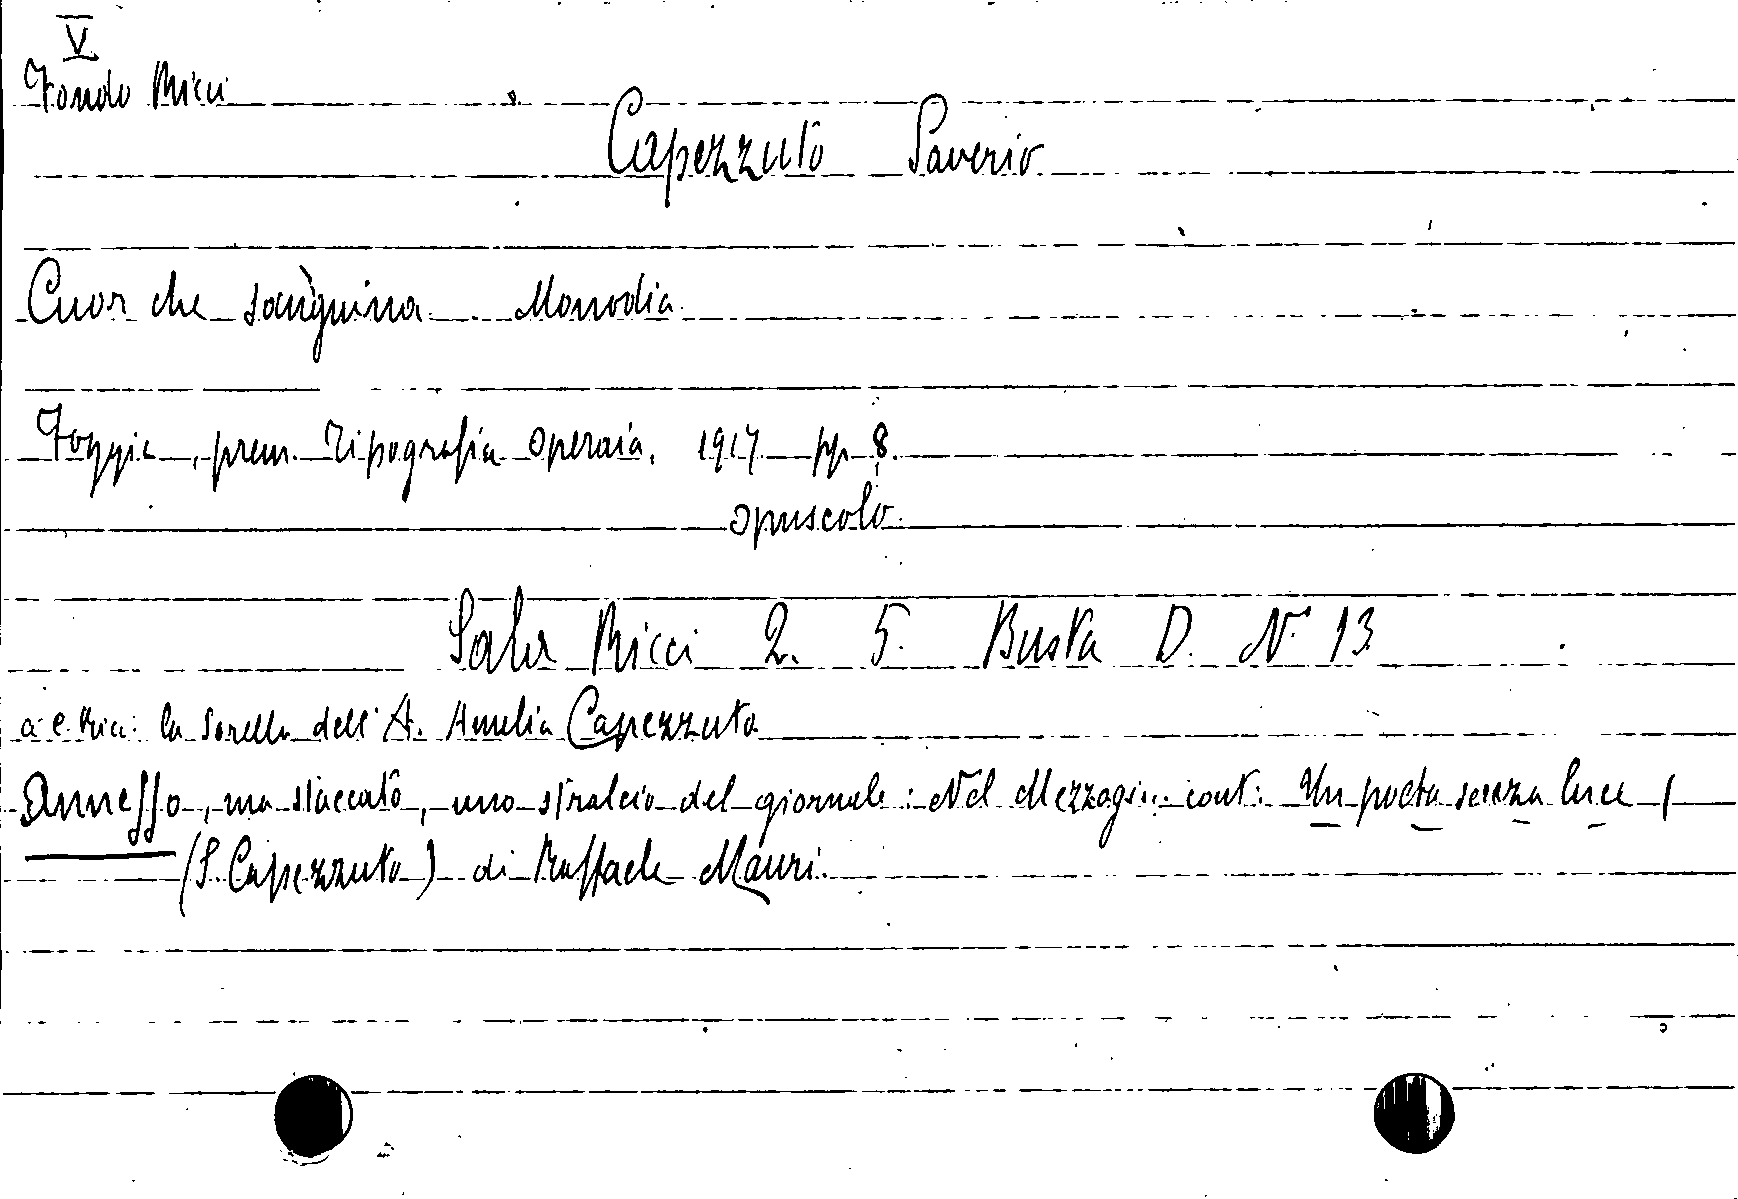 V
Fondo Ricci
Capezzuto Saverio
Cuor che sanguina. Monodia.
Foggia, prem. Tipografia Operaia, 1917 pp. 8.
opuscolo.
Sala Ricci 2. 5. Busta D. N. 13
a C. Ricci la sorella dell'A. Amelia Capezzuto
Annesso, ma staccato, uno stralcio del giornale: Nel Mezzogi... cont: Un poeta senza luce
(S. Capezzuto) di Raffaele Mauri.